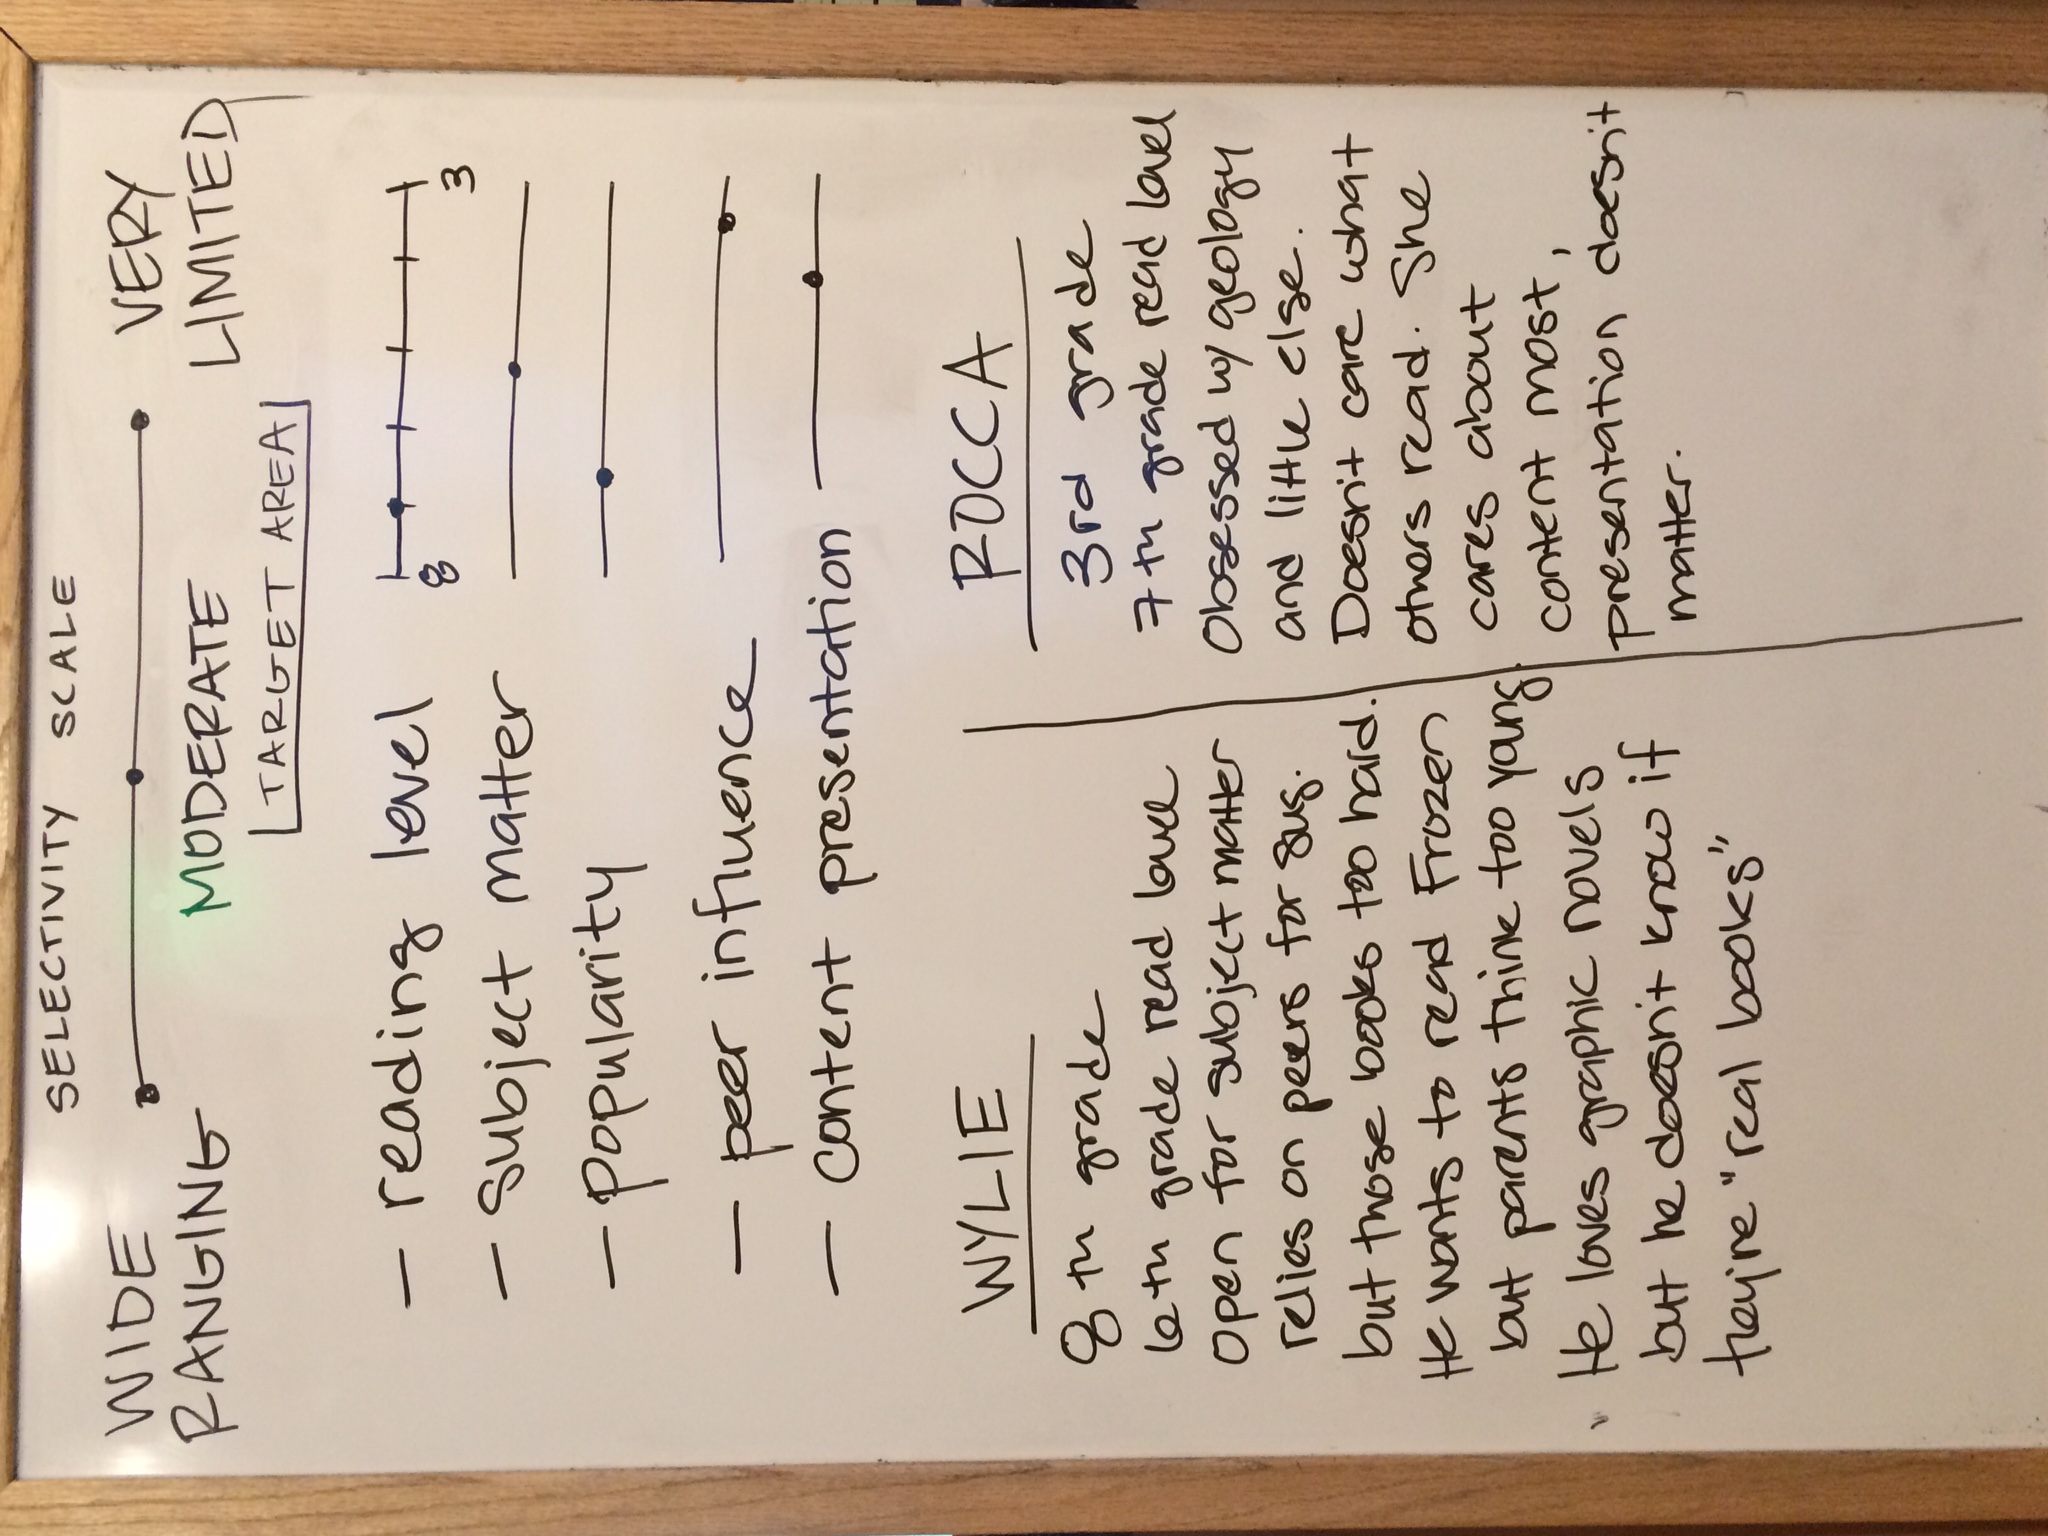 SELECTIVITY SCALE
WIDE RANGING
MODERATE
VERY LIMITED
TARGET AREA
— reading level
8 3
— subject matter
— popularity
— peer influence
— content presentation
WYLIE
8th grade
6th grade read level
open for subject matter
relies on peers for sug.
but those books too hard.
He wants to read Frozen
but parents think too young.
He loves graphic novels
but he doesn't know if
they're "real books"
ROCCA
3rd grade
7th grade read level
Obsessed w/ geology
and little else.
Doesn't care what
others read. She
cares about
content most,
presentation doesn't
matter.